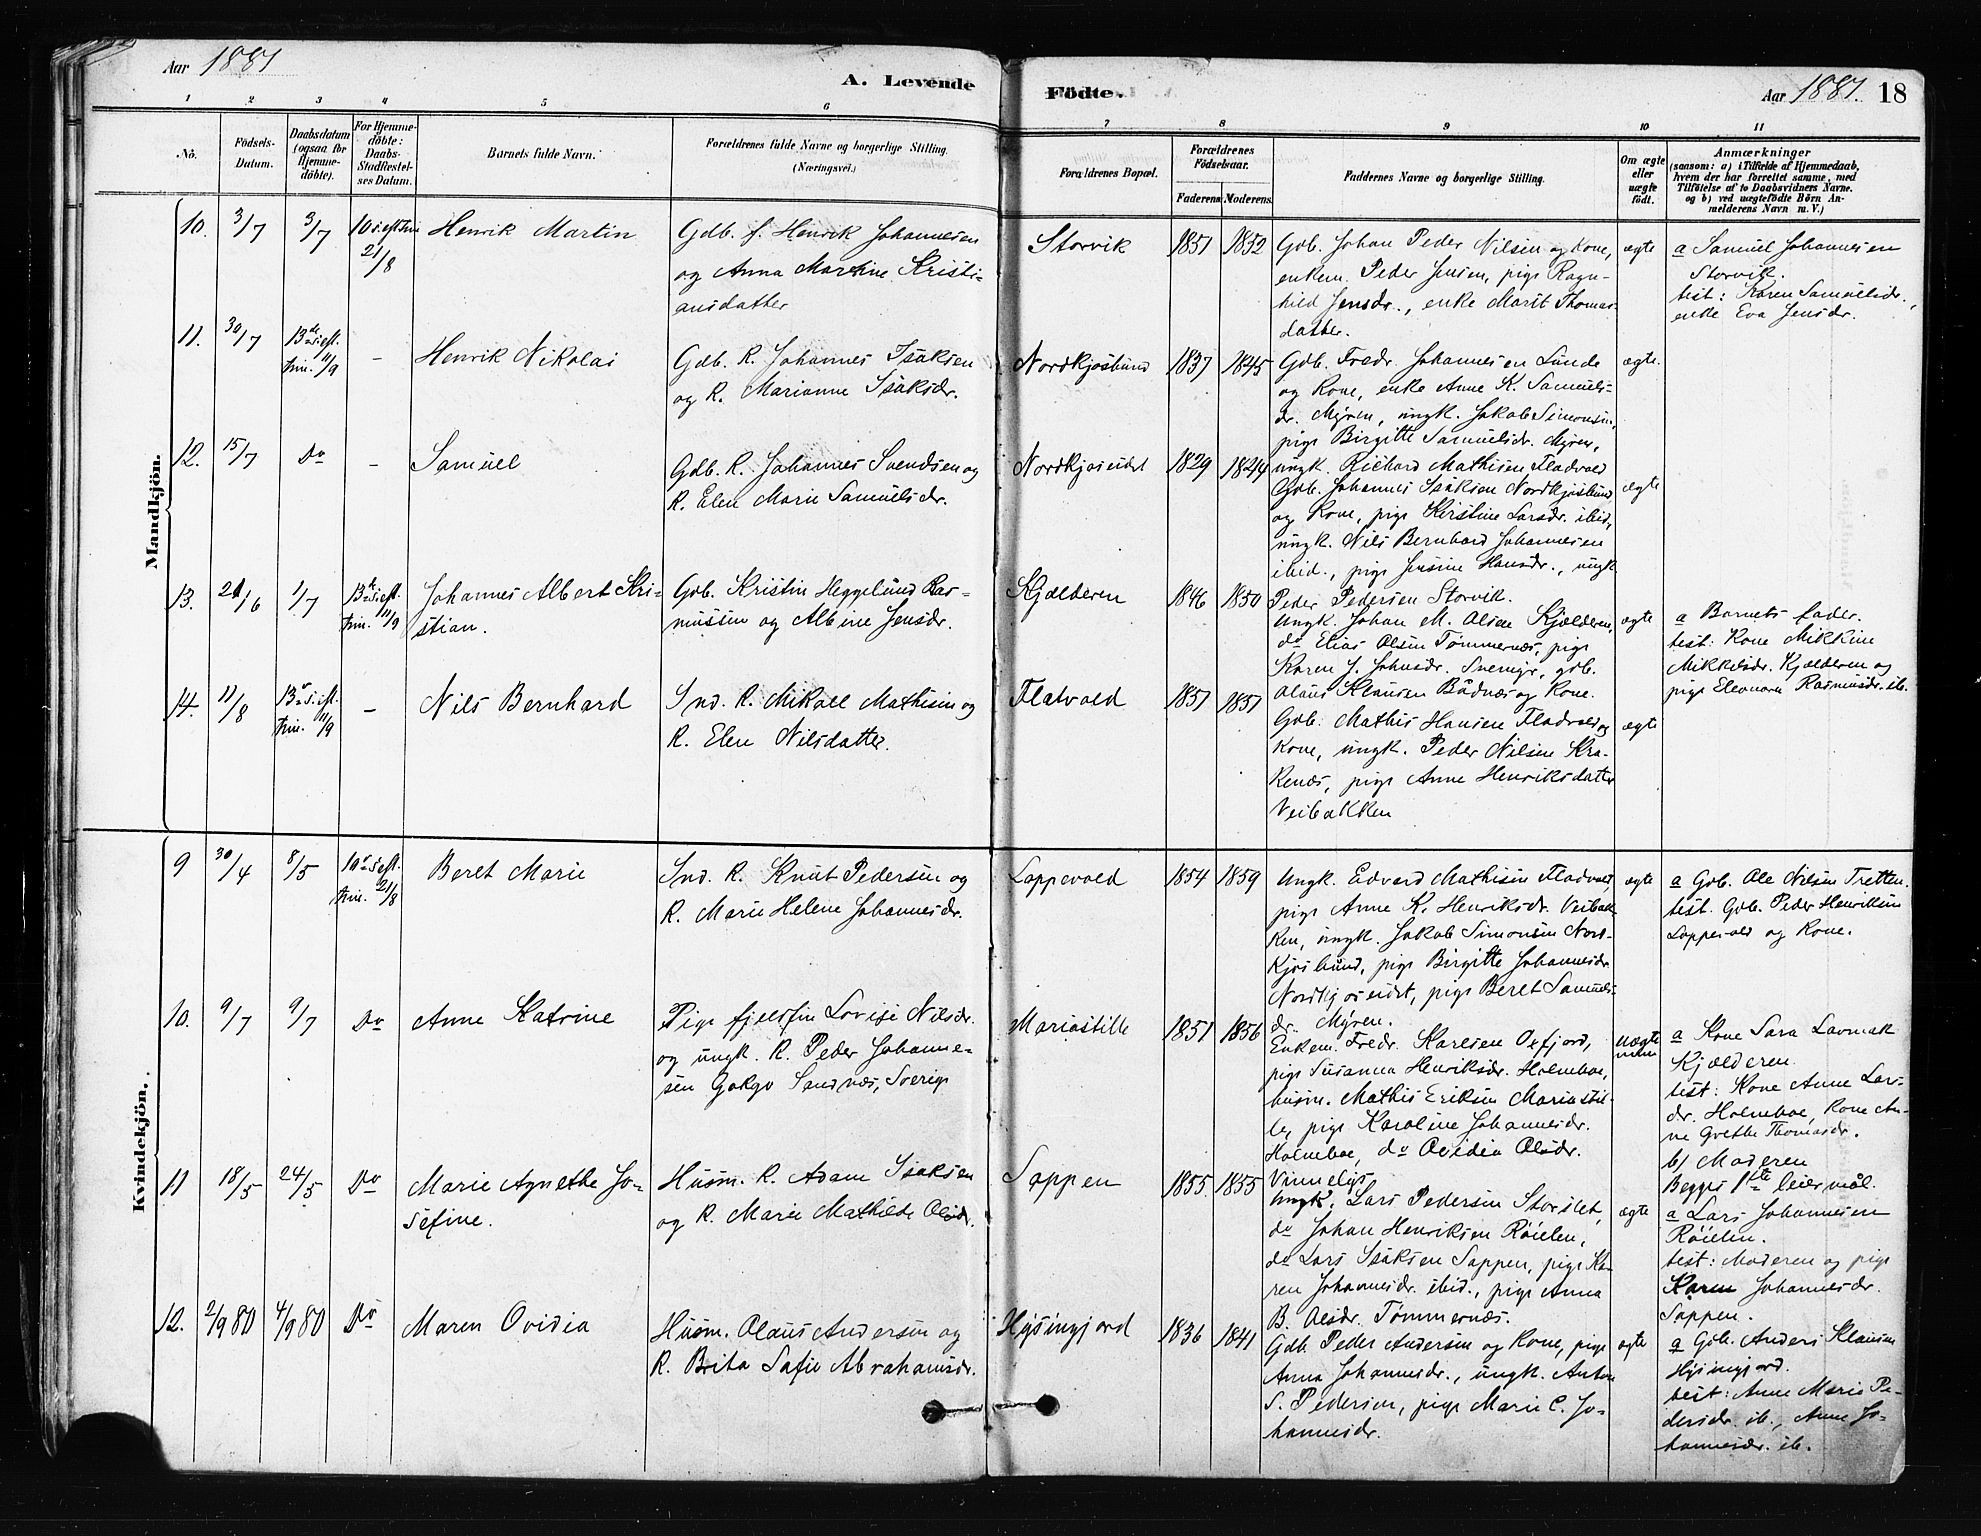 Aar 1881
A. Levende
Födte.
Aar 1881. 18
1 2 3 4 5 6 7 8 9 10 11
No.
Födsels-
Datum.
Daabsdatum
(ogsaa for
Hjemme-
döbte).
For Hjemme-
döbte:
Daabs-
Stadfæstel-
ses Datum.
Barnets fulde Navn.
Forældrenes fulde Navne og borgerlige Stilling.
(Næringsvei.)
Forældrenes Bopæl.
Forældrenes
Födselsaar.
Faderens. Moderens.
Faddernes Navne og borgerlige Stilling.
Om ægte
eller
uægte
födt.
Anmærkninger
(saasom: a) i Tilfælde af Hjemmedaab,
hvem der har forrettet samme, med
Tilföielse af to Daabsvidners Navne.
og b) ved uægtefödte Börn An-
melderens Navn m. V.)
Mandkjön.
10. 3/7 3/7 10 s. eft. trin
21/8
Henrik Martin
Gdb. f. Henrik Johannesen
og Anna Martine Kristi-
ansdatter
Storvik 1851 1852
Gdb. Johan Peder Nilsen og Kone,
enkem. Peder Jensen, pige Ragn-
hild Jensdr., enke Marit Thomas-
datter.
ægte
a Samuel Johannesen
Storvik.
test: Karen Samuelsdr.,
enke Eva Jensdr.
11. 30/7 13de s. eft.
trin. 11/9 -
Henrik Nikolai
Gdb. K. Johannes Isaksen
og K. Marianne Isaksdr.
Nordkjosbund 1837 1845
Gdb. Fredr. Johannesen Lunde
og Kone, enke Anne K. Samuels-
dr. Myren, ungk. Jakob Simonsen,
pige Birgitte Samuelsdr. Myren,
ungk. Richard Mathisen Fladvold
ægte.
12. 15/7 Do -
Samuel
Gdb. K. Johannes Svendsen og
K. Elen Marie Samuelsdr.
Nordkjoseidet 1829 1844
Gdb. Johannes Isaksen Nordkjosbund
og Kone, pige Kirstine Larsdr. ibid,
ungk. Nils Bernhard Johannesen
ibid., pige Jensine Hansdr., ungk.
Peder Pedersen Storvik.
ægte
13. 21/6 1/7 13de s. eft.
trin. 11/9
Johannes Albert Kri-
stian.
Gdb. Kristin Heggelund Ras-
mussen og Albine Jensdr.
Kjælderen 1846 1850
Ungk. Johan M. Olsen Kjælderen,
do Elias Olsen Tømmernæs, pige
Karen J. Johnsdr. Snemyr, gdb.
Olaus Klausen Bådnæs og Kone.
ægte
a Barnets fader.
test: Kone Mikkine
Mikkelsdr. Kjælderen og
pige Eleonora Rasmusdr. ib.
14. 11/8 13de s. eft.
trin. 11/9 -
Nils Bernhard
Ind. K. Mikael Mathisen og
K. Elen Nilsdatter.
Flatvold 1851 1851
Gdb. Mathis Hansen Fladvold og
Kone, ungk. Peder Nilsen Kra-
kenæs, pige Anne Henriksdatter
Veibakken
ægte
Kvindekjön.
9 30/4 8/5 10de s. eft.
trin. 21/8
Beret Marie
Ind. K. Knut Pedersen og
K. Marie Helene Johannesdr.
Lappevold 1854 1859
Ungk. Edvard Mathisen Fladvold,
pige Anne K. Henriksdr. Veibak-
ken, ungk. Jakob Simonsen Nord-
kjosbund, pige Birgitte Johannesdr.
Nordkjoseidet, pige Beret Samuels-
dr. Myren.
ægte
a Gdb. Ole Nilsen Tretten.
test. Gdb. Peder Henriksen
Lappevold og Kone.
10. 9/7 9/7 Do
Anne Katrine
Pige fjeldfin Lovise Nilsdr.
og ungk. K. Peder Johanne-
sen Gokgo Sandnæs, Sverige
Mariastille 1851 1856
Enkem. Fredr. Karlsen Oxfjord,
pige Susanna Henriksdr. Holmeboe,
husm. Mathis Eriksen Mariastil-
le, pige Karoline Johannesdr.
Holmeboe, do Ovidia Olsdr.
Vinnelys.
uægte
a Kone Sara Lavmak
Kjælderen
test: Kone Anne Lars-
dr. Holmeboe, Kone An-
ne Grethe Thomasdr.
b) Moderen
Begges 1ste leiermål.
11 18/5 24/5 Do
Marie Agnethe Jo-
sefine.
Husm. K. Adam Isaksen
og K. Marie Mathilde Olsdr.
Sappen 1855 1855
Ungk. Lars Pedersen Storslet,
do Johan Henriksen Røielen,
do Lars Isaksen Sappen, pige Ka-
ren Johannesdr. ibid., pige Anna
B. Olsdr. Tømmernæs.
ægte
a Lars Johannesen
Røielen.
test: Moderen og pige
Karen Johannesdr.
Sappen.
12. 2/9 80 4/9 80 Do
Maren Ovidia
Husm. Olaus Andersen og
K. Brita Safie Abrahamsdr.
Hysingjord 1836 1841
Gdb. Peder Andersen og Kone, pige
Anna Johannesdr., ungk. Anton
S. Pedersen, pige Marie C. Jo-
hannesdr.
ægte
a Gdb. Anders Klausen
Hysingjord.
test: Anne Marie Pe-
dersdr. ib., Anne Jo-
hannesdr. ib.